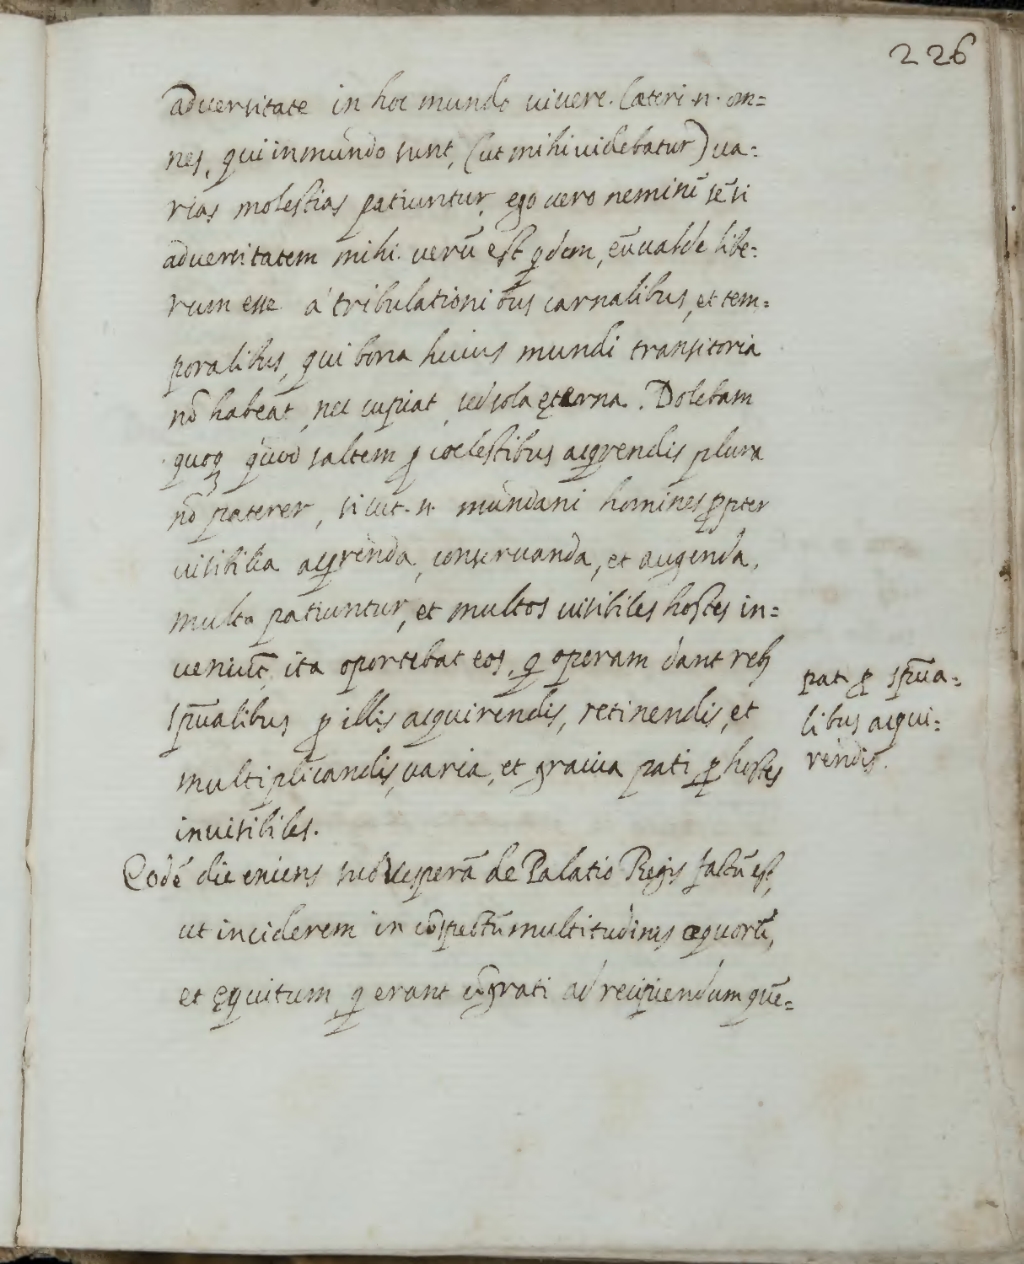 226
adversitate in hoc mundo vivere. Cæteri .n. om=
nes, qui in mundo sunt, (ut mihi videbatur) va=
rias molestias patiuntur, ego vero neminē sēsi
adversitatem mihi. verū est qdem, eū valde libe=
rum esse à tribulationibus carnalibus, et tem=
poralibus, qui bona huius mundi transitoria
nō habeat, nec cupiat, sed sola ęterna. Dolebam
quoq quod saltem p coelestibus acqrendis plura
nō paterer, sicut .n. mundani homines ppter
visibilia acqrenda, conservanda, et augenda,
multa patiuntur, et multos visibiles hostes in=
veniūt, ita oportebat eos, q operam dant reb
spūalibus p illis acquirendis, retinendis, et
multiplicandis, varia, et gravia pati p hostes
invisibiles.
pati p spūa=
libus acqui=
rendis.
Eodē die exiens sub vesperā de Palatio Regis factū est,
ut inciderem in cōspectū multitudinis æquorū,
et ęquitum q erant cōgrati ad recipiendum quē=